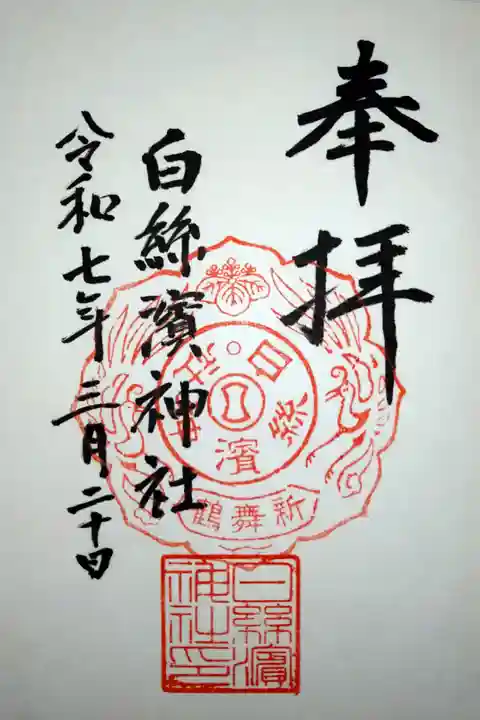 奉拝
白絲濱神社
令和七年三月二十日
白絲濱神社
新舞鶴
白絲濱
神社印